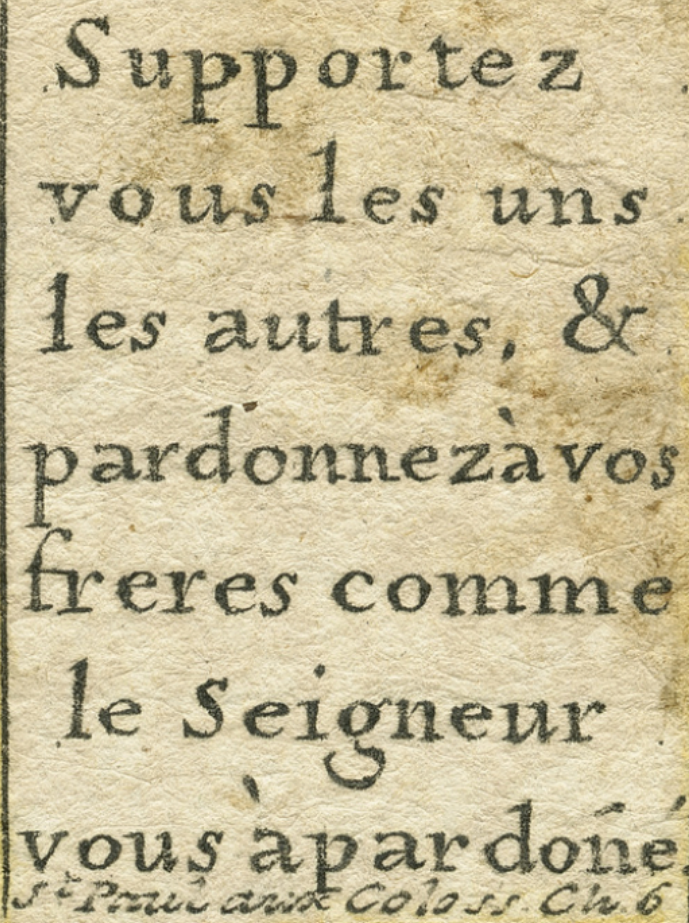 Supportez
vous les uns
les autres, &
pardonnez à vos
freres comme
le Seigneur
vous à pardoñé.
St. Paul aux Coloss. Ch. 6